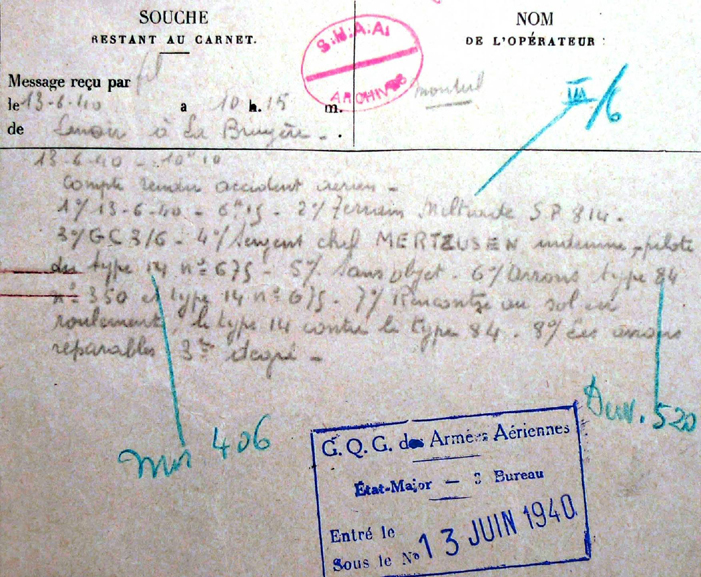 SOUCHE
RESTANT AU CARNET.
NOM
DE L'OPÉRATEUR :
S.H.A.A.
ARCHIVES
Message reçu par fil
le 13-6-40 a 10 h. 15 m.
de Lenoir à La Bruyère - .
III/6
13-6-40 - 10h10
Compte rendu accident aerien -
1°/ 13-6-40 - 6h15 - 2°/ Terrain militaire S.P. 814 -
3°/ GC 3/6 - 4°/ Sergent chef MERTZUSEN indemne, pilote
du type 14 n° 675 - 5°/ Sans objet - 6°/ avions type 84
n° 350 et type 14 n° 675 - 7°/ Rencontre au sol en
roulement, le type 14 contre le type 84 - 8°/ avions
reparables 3me degré -
Mor 406
Dew. 520
G. Q. G. des Armées Aériennes
État-Major — 3 Bureau
Entré le 13 JUIN 1940
Sous le No